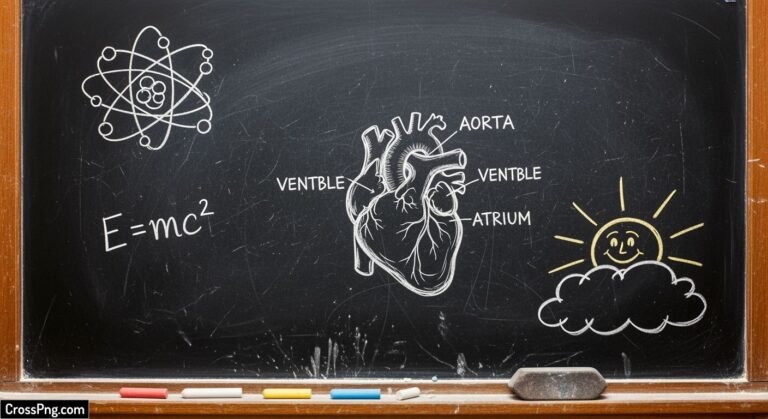 AORTA
VENTBLE
VENTBLE
ATRIUM
E=mc²
CrossPng.com